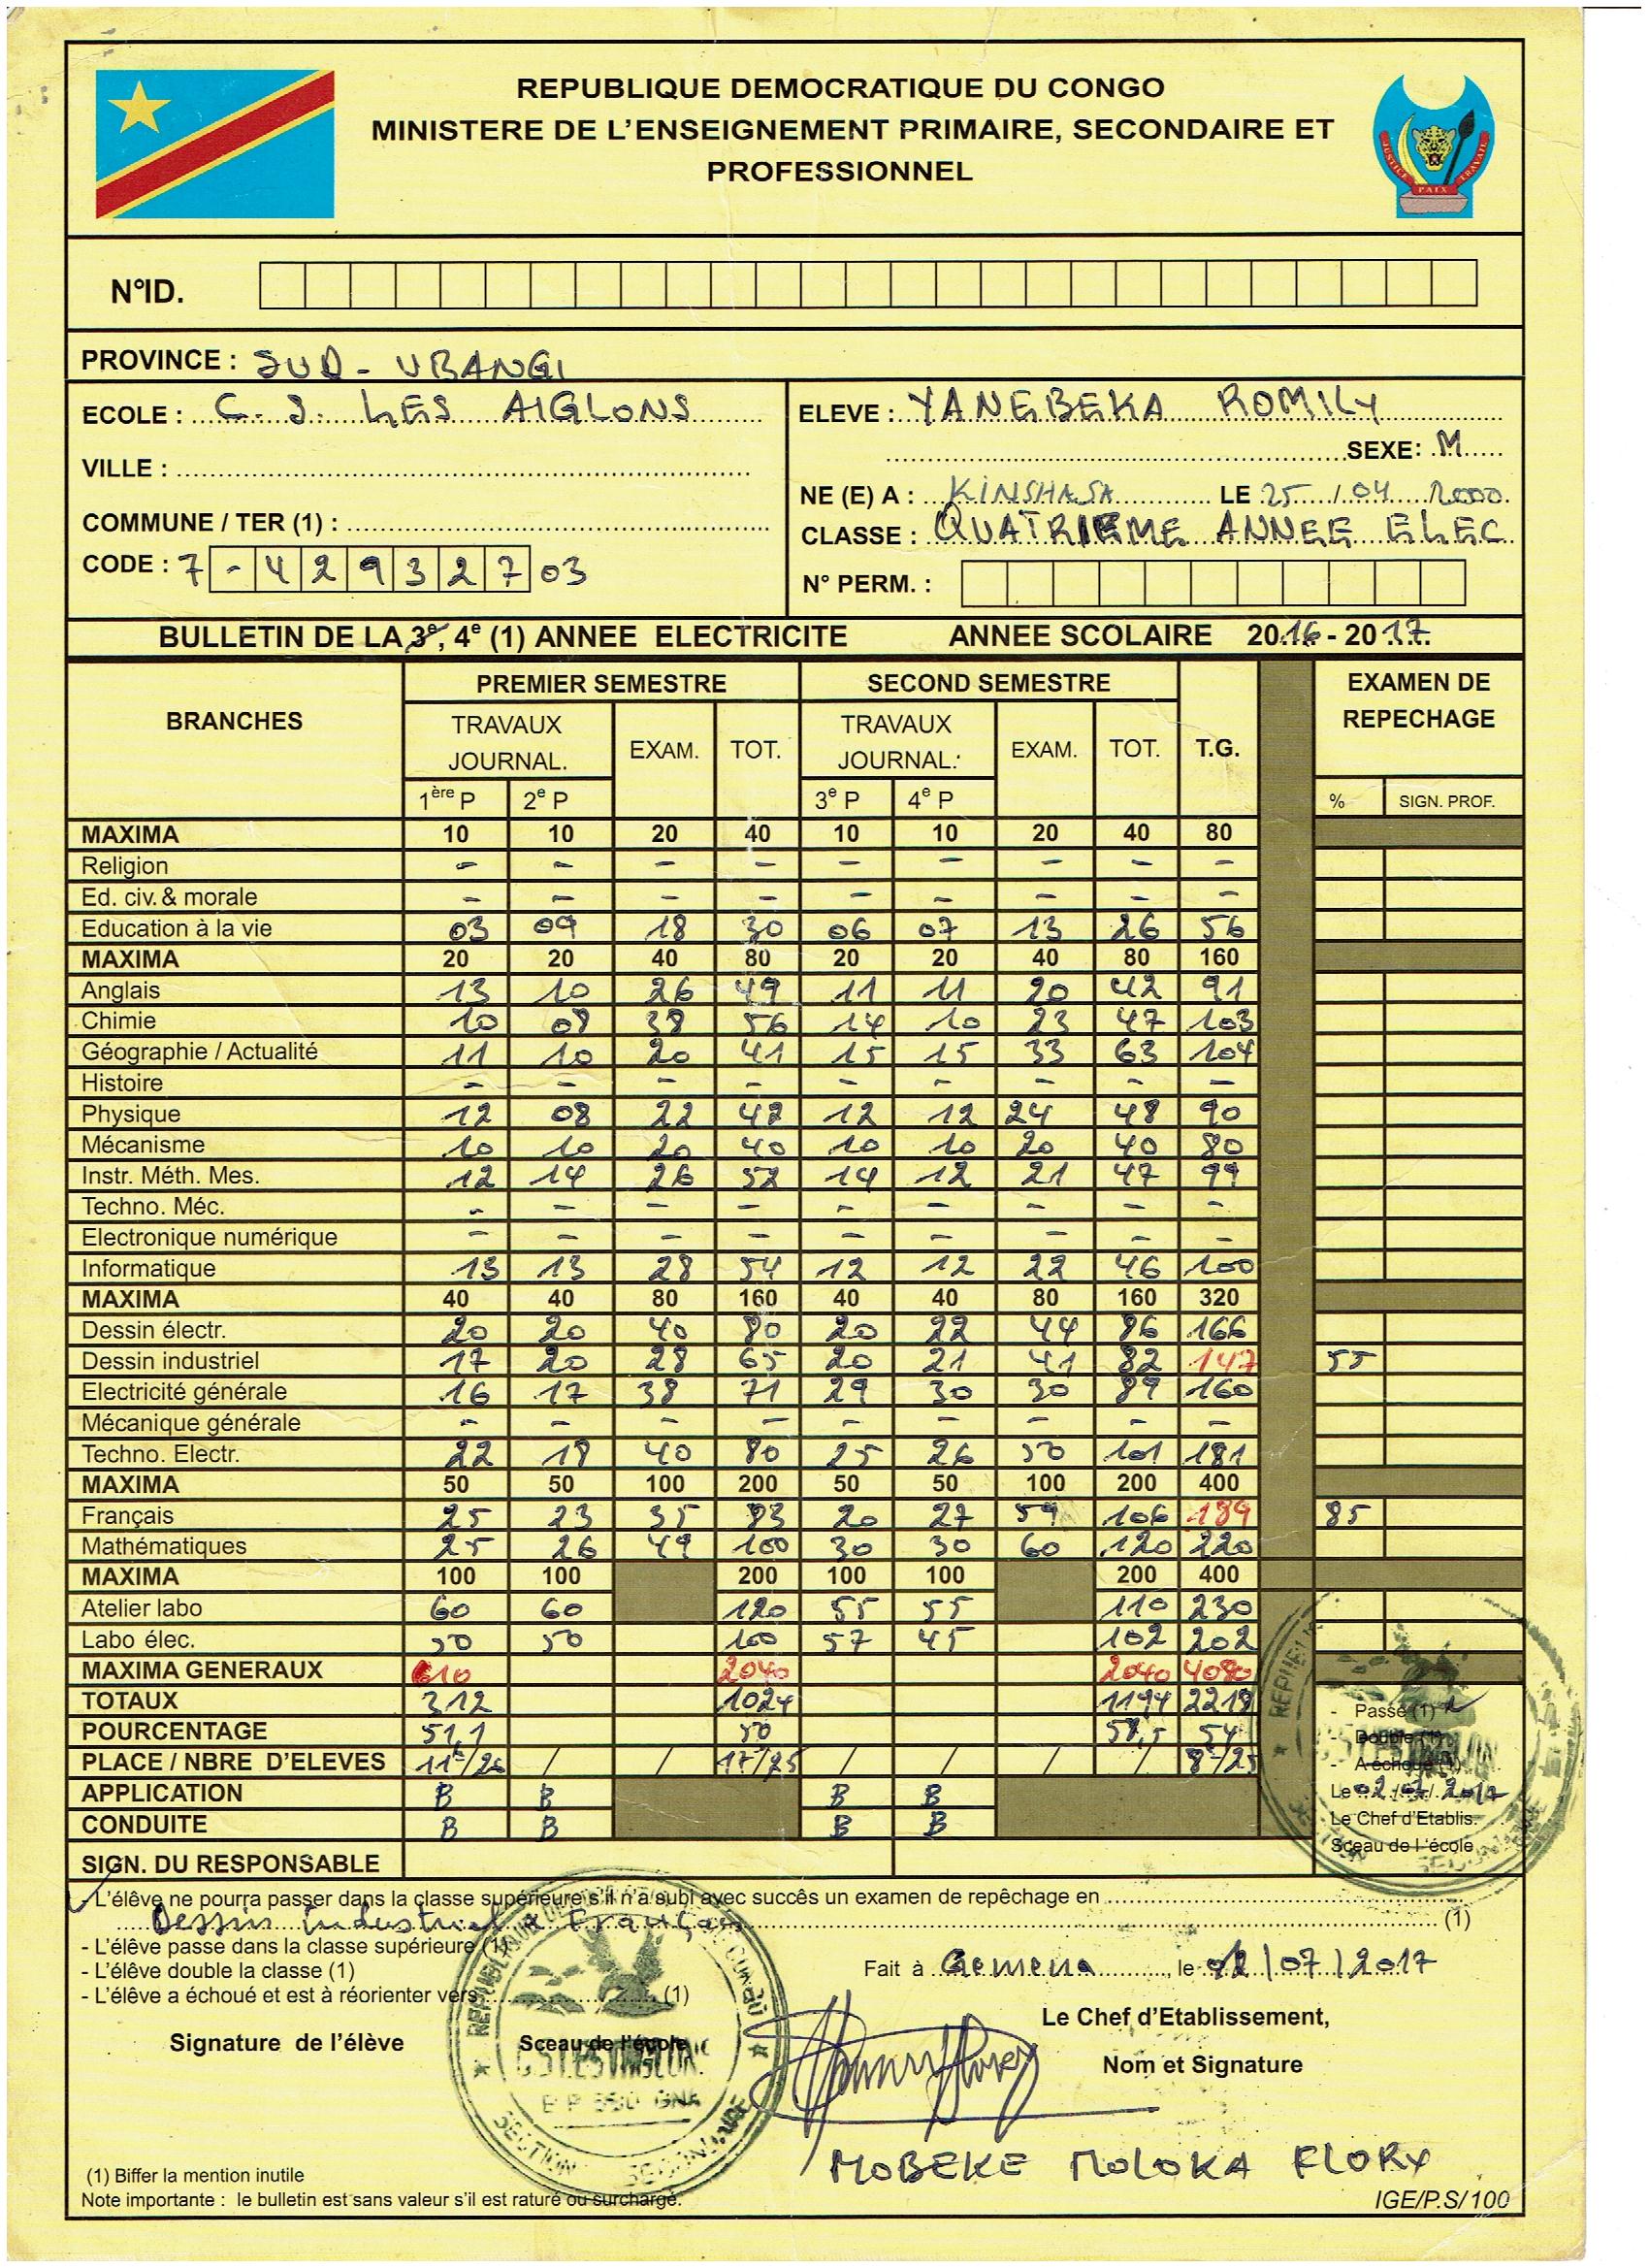 REPUBLIQUE DEMOCRATIQUE DU CONGO
MINISTERE DE L'ENSEIGNEMENT PRIMAIRE, SECONDAIRE ET
PROFESSIONNEL
JUSTICE PAIX TRAVAIL
N°ID.
PROVINCE : SUD - UBANGI
ECOLE : C. S. LES AIGLONS
VILLE :
COMMUNE / TER (1) :
CODE : 7 - 4 2 9 3 2 7 03
ELEVE : YANEBEKA ROMILY
SEXE: M
NE (E) A : KINSHASA LE 25 / 04 2000
CLASSE : QUATRIEME ANNEE ELEC
N° PERM. :
BULLETIN DE LA 3e, 4e (1) ANNEE ELECTRICITE ANNEE SCOLAIRE 2016 - 2017
BRANCHES PREMIER SEMESTRE SECOND SEMESTRE T.G. EXAMEN DE REPECHAGE
TRAVAUX JOURNAL. EXAM. TOT. TRAVAUX JOURNAL. EXAM. TOT.
1ère P 2e P 3e P 4e P % SIGN. PROF.
MAXIMA 10 10 20 40 10 10 20 40 80
Religion - - - - - - - - -
Ed. civ. & morale - - - - - - - - -
Education à la vie 03 09 18 30 06 07 13 26 56
MAXIMA 20 20 40 80 20 20 40 80 160
Anglais 13 10 26 49 11 11 20 42 91
Chimie 10 08 38 56 14 10 23 47 103
Géographie / Actualité 11 10 20 41 15 15 33 63 104
Histoire - - - - - - - - -
Physique 12 08 22 42 12 12 24 48 90
Mécanisme 10 10 20 40 10 10 20 40 80
Instr. Méth. Mes. 12 14 26 52 14 12 21 47 99
Techno. Méc. - - - - - - - - -
Electronique numérique - - - - - - - - -
Informatique 13 13 28 54 12 12 22 46 100
MAXIMA 40 40 80 160 40 40 80 160 320
Dessin électr. 20 20 40 80 20 22 44 86 166
Dessin industriel 17 20 28 65 20 21 41 82 147 55
Electricité générale 16 17 38 71 29 30 30 89 160
Mécanique générale - - - - - - - - -
Techno. Electr. 22 18 40 80 25 26 50 101 181
MAXIMA 50 50 100 200 50 50 100 200 400
Français 25 23 35 83 20 27 59 106 189 85
Mathématiques 25 26 49 100 30 30 60 120 220
MAXIMA 100 100 200 100 100 200 400
Atelier labo 60 60 120 55 55 110 230
Labo élec. 50 50 100 57 45 102 202
MAXIMA GENERAUX 610 2040 2040 4080
TOTAUX 312 1024 1194 2218
POURCENTAGE 51,1 50 58,5 54
PLACE / NBRE D'ELEVES 11e/26 / / 17/25 / / / / 8e/25
APPLICATION B B B B
CONDUITE B B B B
SIGN. DU RESPONSABLE
- Passé (1)
- Double (1)
- A échoué (1)
Le 02/07/2017
Le Chef d'Etablis.
Sceau de l'école
- L'élève ne pourra passer dans la classe supérieure s'il n'a subi avec succès un examen de repêchage en
Dessin industriel & Français (1)
- L'élève passe dans la classe supérieure (1)
- L'élève double la classe (1)
- L'élève a échoué et est à réorienter vers (1)
Fait à Gemena, le 02/07/2017
Le Chef d'Etablissement,
Nom et Signature
Signature de l'élève
Sceau de l'école
B P 350 GNA
SECTION SECONDAIRE
MOBEKE MOLOKA FLORY
(1) Biffer la mention inutile
Note importante : le bulletin est sans valeur s'il est raturé ou surchargé.
IGE/P.S/100